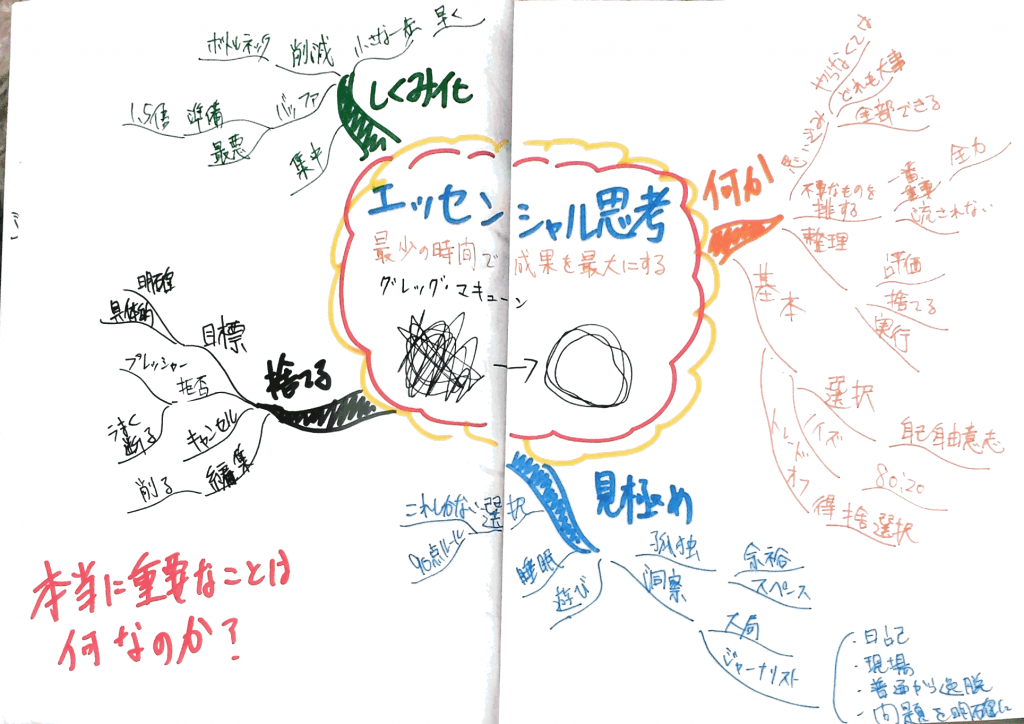 エッセンシャル思考
最少の時間で成果を最大にする
グレッグ・マキューン
何か
思い込み
やらなくては
どれも大事
全部できる
不要なものを
排する
一番
重要
全力
流されない
整理
評価
捨てる
実行
基本
選択
自由意志
ノイズ
80:20
トレードオフ
取捨選択
見極め
孤独
余裕
スペース
洞察
大局
ジャーナリスト
・日記
・現場
・普通から逸脱
・問題を明確に
遊び
睡眠
選択
これしかない
90点ルール
捨てる
目標
明確
具体的
拒否
プレッシャー
うまく
断る
キャンセル
編集
削る
しくみ化
早く
小さな一歩
削減
ボトルネック
バッファ
準備
1.5倍
最悪
集中
本当に重要なことは
何なのか?